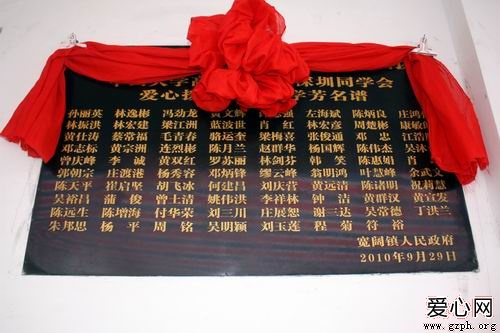 大学 深圳同学会
爱心 学芳名谱
孙丽英 林逸彬 冯劲龙 黄文辉 左海斌 陈炳良 庄鸿
林振洪 林宏建 梁江洲 蓝波壮 肖红 林宏彦 周楚彬 康敏
黄仕涛 蔡常福 毛青春 骆岩奎 梁掩波 张俊通 邓忠 江浩
邓志标 黄宗洲 连烈彬 陈月兰 赵群华 杨国辉 陈伟杰 吴沐
曾庆峰 李诚 黄双红 罗苏丽 林剑芬 韩笑 陈惠娟 肖
郭朝宗 庄渡港 杨秀容 邓炳锋 缪云峰 翁明辉 叶慧峰 余武文
陈天平 崔启坚 胡飞冰 何建昌 刘庆营 黄远清 陈诸明 祝莉慧
吴裕昌 蒲俊 曾土清 姚伟洪 李祥林 钟洁 黄群汉 黄宣发
陈远生 陈增海 付华荣 刘三川 庄展恕 谢三达 吴常德 丁洪兰
朱邦思 杨平 周铭 吴明颖 刘玉莲 程菊 符裕
宽阔镇人民政府
2010年9月29日
爱心网
www.gzph.org